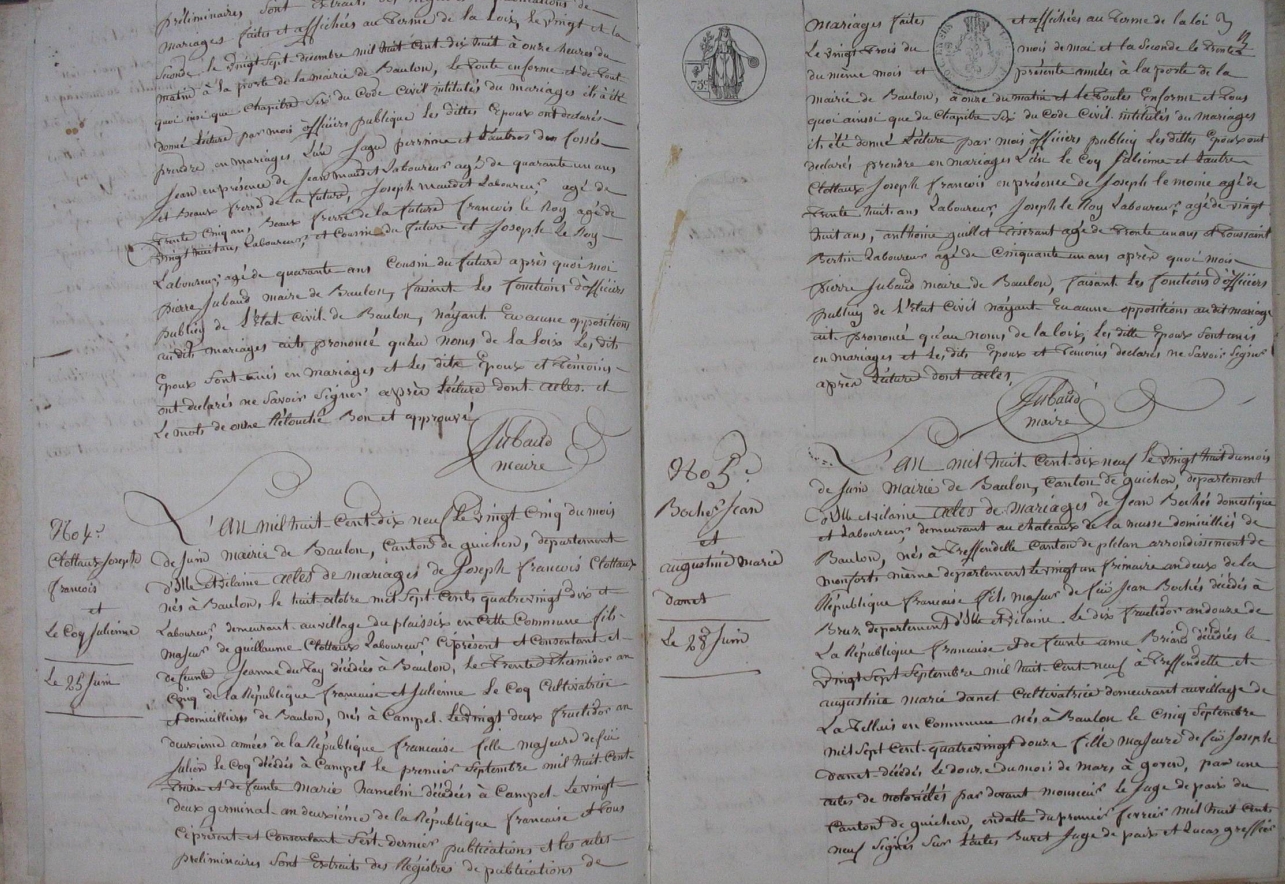 préliminaires sont Extraits des Registres de publications de
mariages faites et affichées au Terme de la Loix, le vingt et la
seconde le vingt Sept decembre mil huit cent dix huit à onze heures du
matin à la porte de la mairie de Baulon, le tout en forme et de tout
quoi insi que chapitre Six du Code Civil intitulés du mariages il à été
donné Lecture par mois officiers publique les dittes Epoux ont declarés
prendre en mariages L'un Jagu perrinne et L'autres du fossés
Jean en présence de Jean maudet Laboureur agé de quarante un ans
et Beaux frere de la future, Joseph maudet Laboureur agé de
trente cinq ans, Beaux frerre de la future francois le Roy agé de
vingt huit ans, Laboureur et Cousin du future et Joseph Le Roy
Laboureur agé de quarante ans Cousin du future après quoi moi
pierre Jubaud maire de Baulon, faisant les fonctions d'officiers
publicq de L'Etat Civil de Baulon, n'ayant Eu aucune oppositions
audits mariages aits prononcé qu'au noms de la Loix Les dits
Epoux sont unis en mariages et les dits Epoux et témoins
ont declarés ne savoir Signer après Lecture dont actes. et
le mots de onze Rétouché Bon et approuvé
Jubaud
maire
No 4.
Clottaux Joseph
francois
et
Le Coq Julienne
Le 25 Juin
L'AN mil huit Cent dix neuf Le vingt Cinq du mois
de Juin mairie de Baulon, Canton de guichen, département
d'Ille et vilaine actes de mariages de Joseph francois Clottaux
nés à Baulon, le huit octobre mil Sept Cents quatre vingt dix et
Laboureur demeurant au village du plaissix en Cette Commune fils
majeur de guillaume Clottaux Laboureur Ciprésent et Consentant et
de feunte Jeanne du fay décédés à Baulon, le trente thermidor an
Cinq de la République francaise et Julienne Le Coq Cultivatrice
et domiciliers de Baulon, nés à Campel Le vingt deux fructidor an
deuxieme années de la République francaise fille majeure de feü
Julien le Coq décédés à Campel le premier Septembre mil huit Cent
onze et de feunte Marie hamelin décédés à Campel Le vingt
deux germinal an deuxième de la République francaise tous
Ciprésent et Consentant S'est dernier publications et les actes
préliminaires sont Extraits des Registres de publications de
mariages faites et affichées au terme de la loi
Le vingt trois du mois de mai et la seconde le trente
du même mois et présente années à la porte de la
mairie de Baulon, à onze du matin et le toutes Enforme et tous
quoi ainssi que du chapitre Six du Code Civil intitulés du mariages
it été donné Lecture par mois officiers publicq les dittes Epoux ont
declarés prendre en mariages L'un le Coq Julienne et L'autre
Clottaux Joseph francois en présence de Joseph le moine agé de
trente huit ans Laboureur, Joseph le Roy Laboureur agé de vingt
huit ans, anthoine guillet tisserant agé de trente un ans et toussaint
Bertin Laboureur agé de Cinquante un ans après quoi mois
pierre Jubaud maire de Baulon, faisant les fonctions d'officiers
publicq de L'état Civil n'ayant Eu aucune oppositions audit mariage
ait prononcé qu'au noms de la loix, les ditte Epoux sont unis
en mariages et les dits Epoux et témoins declarés ne savoir Signer
après Lecture dont actes.
Jubaud
maire
No 5.
Boché Jean
et
augustine Marie
danet
Le 28 Juin
L'AN mil huit Cent dix neuf le vingt huit du mois
de Juin Mairie de Baulon, Canton de guichen, departement
d'Ille et vilaine actes de mariages de Jean Bochés domestique
et Laboureur demeurant au chateaux de la musse domiciliés de
Baulon, nés à treffendelle Canton de plelan arrondissement de
monforts même departement le vingt un frimaire an deux de la
République francaise fils majeur de feü Jean Bochés décédés à
Bruz departement d'Ille et vilaine Le dix fructidor an douze de
La République francaise et de feunte anne Briand décédés le
vingt Sept Septembre mil huit Cent neuf à treffendelle et
augustine marie danet Cultivatrice demeurant au village de
La en Commune nés à Baulon le Cinq Septembre
mil Sept Cent quatre vingt douze fille majeure de feü Joseph
danet décédés le douze du mois de Mars à goven, par une
actes de notoriétés par devant monsieur le Juge de paix du
Canton de guichen, en datte du premier fevrier mil huit Cents
neuf Signés Sur L'actes Buret Juge de paix et Lucas greffier